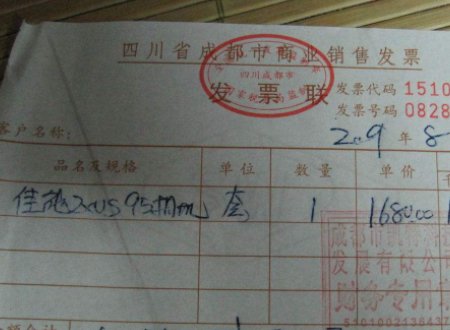 四川省成都市商业销售发票
四川成都市
发票联
发票代码 1510
发票号码 0828
客户名称：
2009 年 8
品名及规格 单位 数量 单价
佳能 IXUS 95 相机 套 1 1680.00
发展有限公司
财务专用章
5101002138437